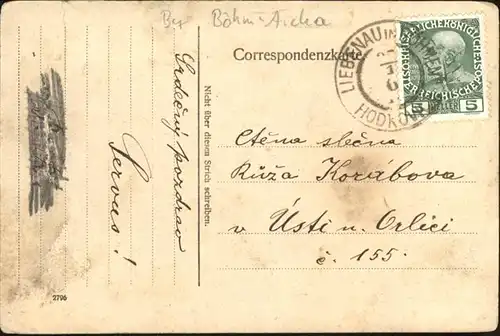 Böhm-Aicha
Correspondenzkarte
LIEBENAU in BÖHMEN
HODKOV
5 HELLER 5
Nicht über diesen Strich schreiben.
Srdečný pozdrav
Servus!
Ctěna slečna
Růža Korábova
v Ústi n. Orlici
č. 155.
2796